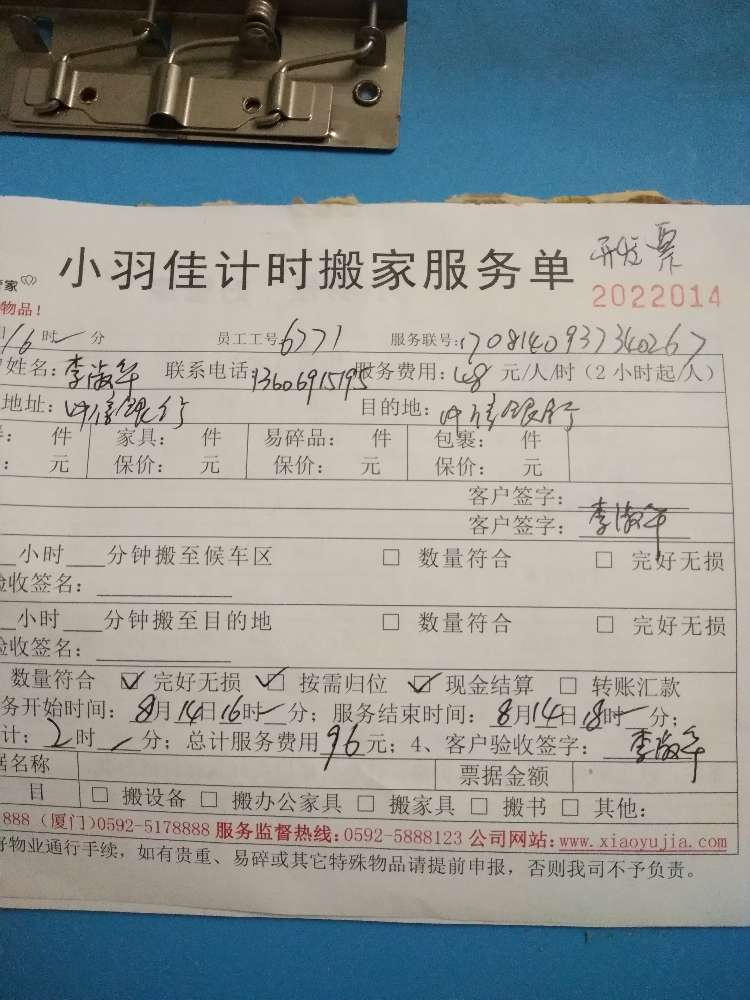 小羽佳计时搬家服务单 开发票
家 2022014
物品！
16时 分 员工工号: 6771 服务联号: 1708140937340267
姓名: 李淑年 联系电话: 13606915195 服务费用: 48 元/人/时（2小时起/人）
地址: 中信银行 目的地: 中信银行
件 家具： 件 易碎品： 件 包裹： 件
： 元 保价： 元 保价： 元 保价： 元
客户签字：
客户签字： 李淑年
小时 分钟搬至候车区 □ 数量符合 □ 完好无损
验收签名：
小时 分钟搬至目的地 □ 数量符合 □ 完好无损
验收签名：
数量符合 ☑ 完好无损 ☑ 按需归位 ☑ 现金结算 □ 转账汇款
务开始时间：8月14日16时 分；服务结束时间：8月14日18时 分；
计：2时 分；总计服务费用96元；4、客户验收签字：李淑年
据名称 票据金额
目 □ 搬设备 □ 搬办公家具 □ 搬家具 □ 搬书 □ 其他：
888（厦门)0592-5178888 服务监督热线:0592-5888123 公司网站:www.xiaoyujia.com
好物业通行手续，如有贵重、易碎或其它特殊物品请提前申报，否则我司不予负责。